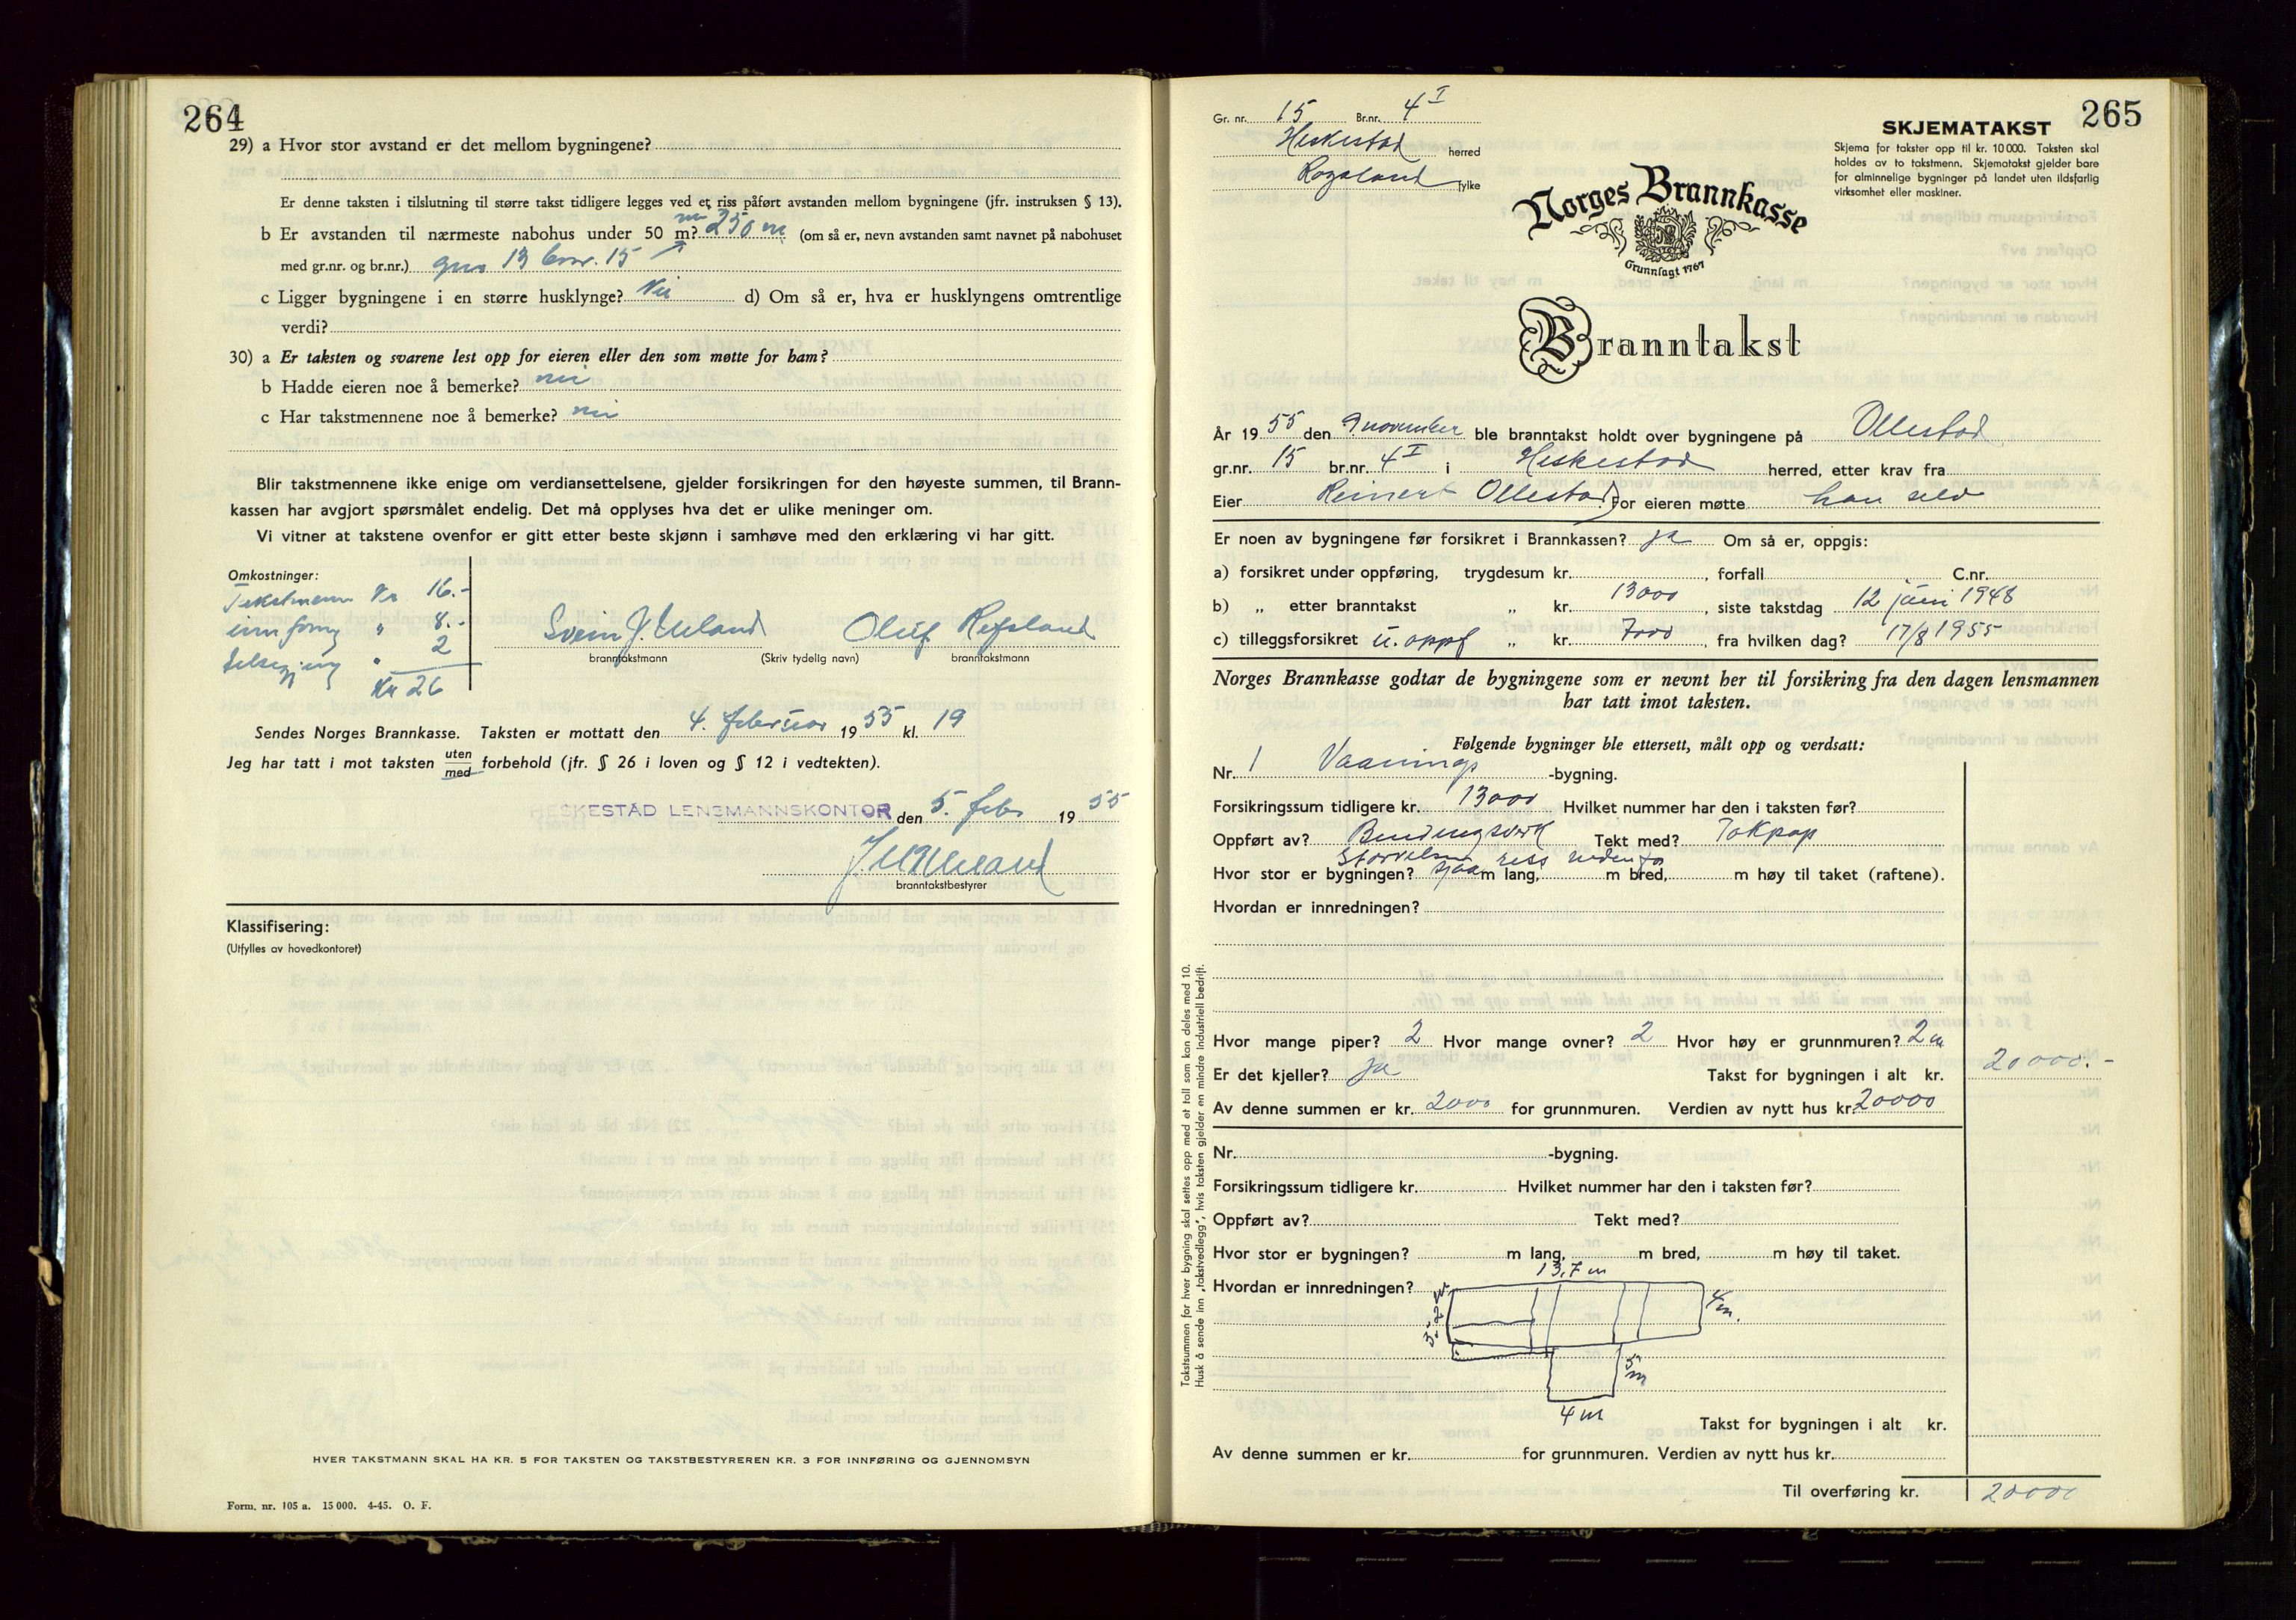 264
29) a Hvor stor avstand er det mellom bygningene?
Er denne taksten i tilslutning til større takst tidligere legges ved et riss påført avstanden mellom bygningene (jfr. instruksen § 13).
b Er avstanden til nærmeste nabohus under 50 m? 250 m (om så er, nevn avstanden samt navnet på nabohuset
med gr.nr. og br.nr.) gnr 13 bnr. 15
c Ligger bygningene i en større husklynge? Nei d) Om så er, hva er husklyngens omtrentlige
verdi?
30) a Er taksten og svarene lest opp for eieren eller den som møtte for ham?
b Hadde eieren noe å bemerke? nei
c Har takstmennene noe å bemerke? nei
Blir takstmennene ikke enige om verdiansettelsene, gjelder forsikringen for den høyeste summen, til Brann-
kassen har avgjort spørsmålet endelig. Det må opplyses hva det er ulike meninger om.
Vi vitner at takstene ovenfor er gitt etter beste skjønn i samhøve med den erklæring vi har gitt.
Omkostninger:
Takstmenn Kr 16.-
innføring " 8.-
" 2
Kr 26
Svein J. Ueland Oluf Refsland
branntakstmann (Skriv tydelig navn) branntakstmann
Sendes Norges Brannkasse. Taksten er mottatt den 4. februar 1955 kl. 19
Jeg har tatt i mot taksten uten/med forbehold (jfr. § 26 i loven og § 12 i vedtekten).
HESKESTAD LENSMANNSKONTOR den 5. febr 1955
Ueland
branntakstbestyrer
Klassifisering:
(Utfylles av hovedkontoret)
HVER TAKSTMANN SKAL HA KR. 5 FOR TAKSTEN OG TAKSTBESTYREREN KR. 3 FOR INNFØRING OG GJENNOMSYN
Form. nr. 105 a. 15 000. 4-45. O. F.
265
Gr. nr. 15 Br.nr. 4 I
Heskestad herred
Rogaland fylke
SKJEMATAKST
Skjema for takster opp til kr. 10 000. Taksten skal
holdes av to takstmenn. Skjematakst gjelder bare
for alminnelige bygninger på landet uten ildsfarlig
virksomhet eller maskiner.
Norges Brannkasse
Grunnlagt 1767
Branntakst
År 1955 den 9 november ble branntakst holdt over bygningene på Ollestad
gr.nr. 15 br.nr. 4 I i Heskestad herred, etter krav fra
Eier Reinert Ollestad For eieren møtte han selv
Er noen av bygningene før forsikret i Brannkassen? ja Om så er, oppgis:
a) forsikret under oppføring, trygdesum kr. , forfall C.nr.
b) „ etter branntakst „ kr. 13000, siste takstdag 12 juni 1948
c) tilleggsforsikret u. oppf „ kr. 7000, fra hvilken dag? 17/8 1955
Norges Brannkasse godtar de bygningene som er nevnt her til forsikring fra den dagen lensmannen
har tatt imot taksten.
Følgende bygninger ble ettersett, målt opp og verdsatt:
Nr. 1 Vaanings -bygning.
Forsikringssum tidligere kr. 13000 Hvilket nummer har den i taksten før?
Oppført av? Bindingsverk Tekt med? Takpap
Storrelsen sjaa riss nedenfor
Hvor stor er bygningen? m lang, m bred, m høy til taket (raftene).
Hvordan er innredningen?
Hvor mange piper? 2 Hvor mange ovner? 2 Hvor høy er grunnmuren? 2 m
Er det kjeller? ja Takst for bygningen i alt kr. 20000.-
Av denne summen er kr. 2000 for grunnmuren. Verdien av nytt hus kr. 20000
Nr. -bygning.
Forsikringssum tidligere kr. Hvilket nummer har den i taksten før?
Oppført av? Tekt med?
Hvor stor er bygningen? m lang, m bred, m høy til taket.
13,7 m
Hvordan er innredningen?
4 m.
5 m
4 m
Takst for bygningen i alt kr.
Av denne summen er kr. for grunnmuren. Verdien av nytt hus kr.
Til overføring kr. 20000
Takstsummen for hver bygning skal settes opp med et tall som kan deles med 10.
Husk å sende inn „takstvedlegg“, hvis taksten gjelder en mindre industriell bedrift.